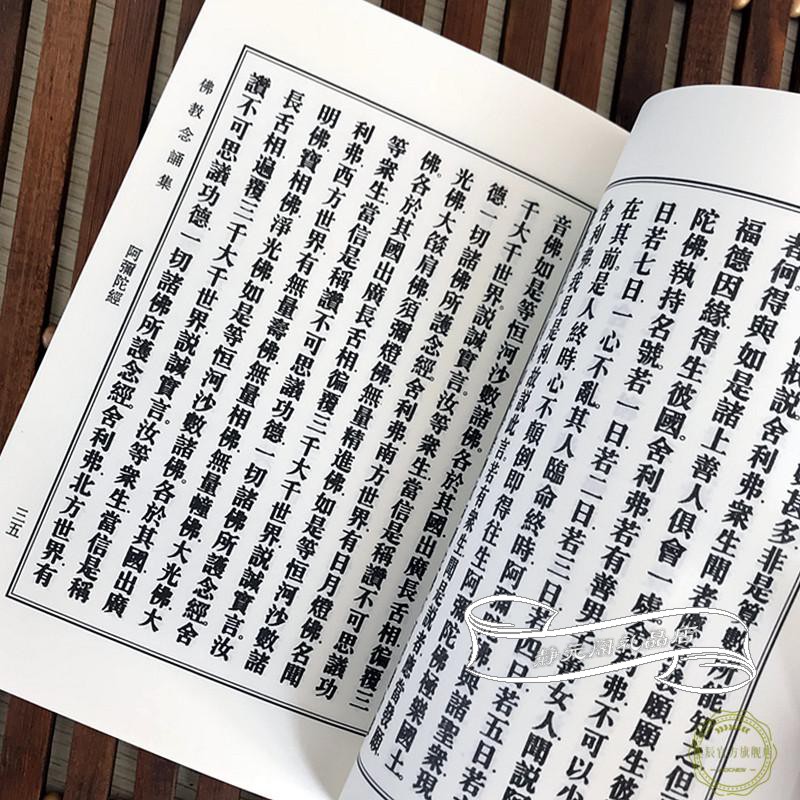 甚多非是算數所能知之但
說。舍利弗。衆生聞者應當發願願生彼
者何。得與如是諸上善人俱會一處。舍利弗。不可以少
福德因緣得生彼國。舍利弗。若有善男子善女人聞說阿
陀佛。執持名號。若一日。若二日。若三日。若四日。若五日。若
日。若七日。一心不亂。其人臨命終時。阿彌陀佛與諸聖衆現
在其前。是人終時。心不顛倒。即得往生阿彌陀佛極樂國土。
舍利弗。我見是利。故說此言。若有衆生聞是說者。應當發願。
音佛。如是等恒河沙數諸佛。各於其國。出廣長舌相。徧覆三
千大千世界。説誠實言。汝等衆生。當信是稱讚不可思議功
德一切諸佛所護念經。舍利弗。南方世界有日月燈佛。名聞
光佛。大燄肩佛。須彌燈佛。無量精進佛。如是等恒河沙數諸
佛。各於其國。出廣長舌相。徧覆三千大千世界。説誠實言。汝
等衆生。當信是稱讚不可思議功德一切諸佛所護念經。舍
利弗。西方世界有無量壽佛。無量相佛。無量幢佛。大光佛。大
明佛。寶相佛。淨光佛。如是等恒河沙數諸佛。各於其國。出廣
長舌相。徧覆三千大千世界。説誠實言。汝等衆生。當信是稱
讚不可思議功德一切諸佛所護念經。舍利弗。北方世界有
佛教念誦集
阿彌陀經
三五
辰官方旗舰